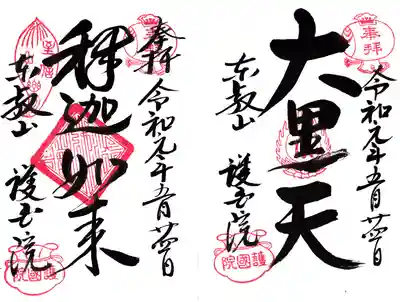 奉拝
令和元年五月廿四日
大黒天
東叡山 護国院
護國院
奉拝
令和元年五月廿四日
釈迦如来
東叡山 護国院
護國院